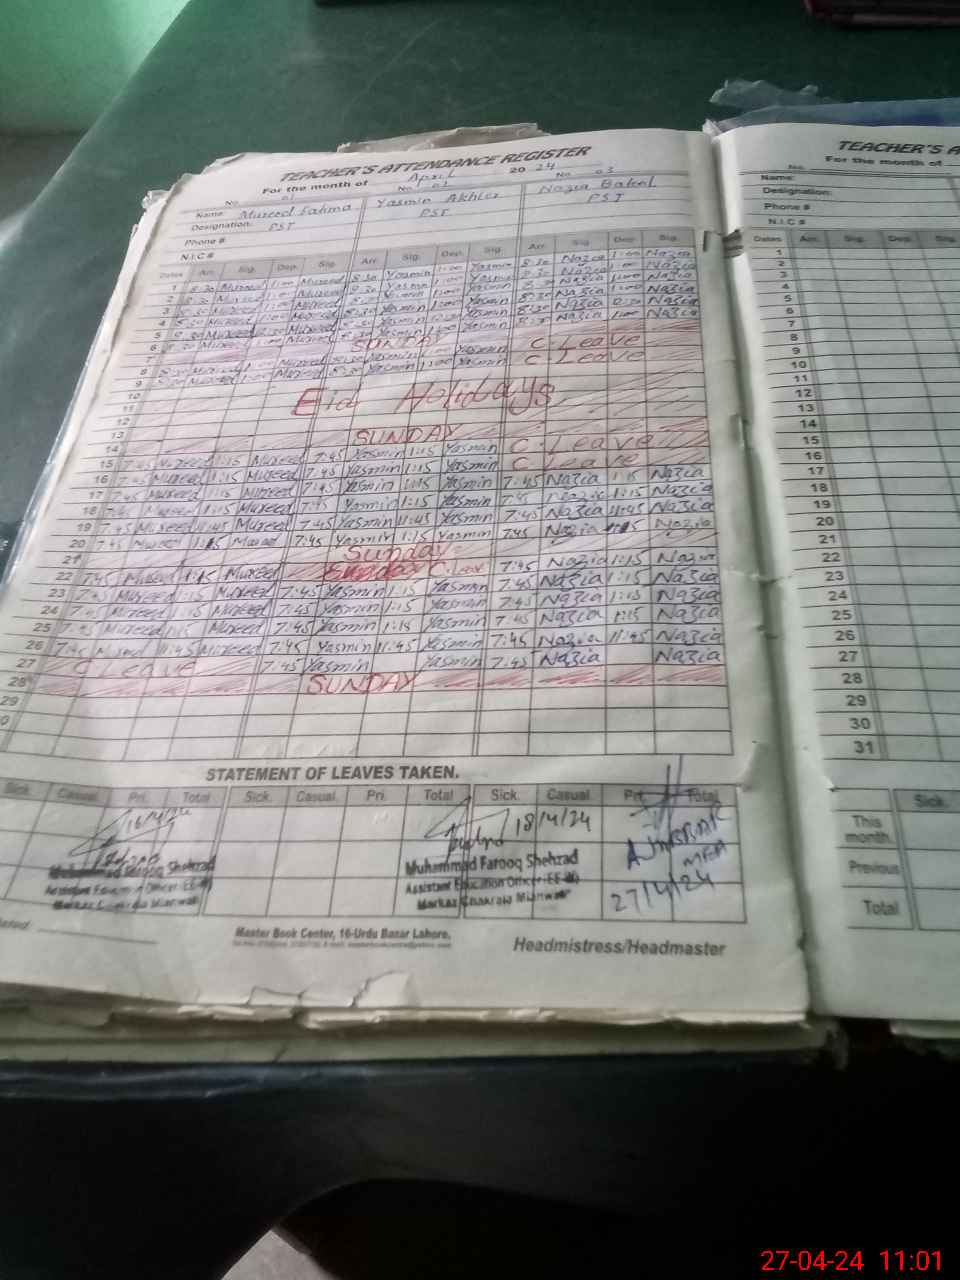 TEACHER'S ATTENDANCE REGISTER
For the month of April 2024
No. 01 No 02 No 03
Name: Mureed Fatima Yasmin Akhter Nazia Batool
Designation: PST PST PST
Phone #
N.I.C #
Dates Arr. Sig. Dep. Sig. Arr. Sig. Dep. Sig. Arr. Sig. Dep. Sig.
1 8:30 Mureed 1:00 Mureed 8:30 Yasmin 1:00 Yasmin 8:30 Nazia 1:00 Nazia
2 8:30 Mureed 1:00 Mureed 8:30 Yasmin 1:00 Yasmin 8:30 Nazia 1:00 Nazia
3 8:30 Mureed 1:00 Mureed 8:30 Yasmin 1:00 Yasmin 8:30 Nazia 1:00 Nazia
4 8:30 Mureed 1:00 Mureed 8:30 Yasmin 1:00 Yasmin 8:30 Nazia 1:00 Nazia
5 8:30 Mureed Mureed 8:30 Yasmin Yasmin 8:30 Nazia Nazia
6 8:30 Mureed 1:00 Mureed 8:30 Yasmin 1:00 Yasmin 8:30 Nazia 1:00 Nazia
7 SUNDAY
8 8:30 Mureed 1:00 Mureed 8:30 Yasmin 1:00 Yasmin C.Leave
9 8:30 Mureed 1:00 Mureed 8:30 Yasmin 1:00 Yasmin C.Leave
10
11 Eid Holidays
12
13
14 SUNDAY
15 7:45 Mureed 1:15 Mureed 7:45 Yasmin 1:15 Yasmin C.Leave
16 7:45 Mureed 1:15 Mureed 7:45 Yasmin 1:15 Yasmin C.Leave
17 7:45 Mureed 1:15 Mureed 7:45 Yasmin 1:15 Yasmin 7:45 Nazia 1:15 Nazia
18 7:45 Mureed 1:15 Mureed 7:45 Yasmin 1:15 Yasmin 7:45 Nazia 1:15 Nazia
19 7:45 Mureed 11:45 Mureed 7:45 Yasmin 11:45 Yasmin 7:45 Nazia 11:45 Nazia
20 7:45 Mureed 1:15 Mureed 7:45 Yasmin 1:15 Yasmin 7:45 Nazia 1:15 Nazia
21 Sunday
22 7:45 Mureed 1:15 Mureed C.Leave 7:45 Nazia 1:15 Nazia
23 7:45 Mureed 1:15 Mureed 7:45 Yasmin 1:15 Yasmin 7:45 Nazia 1:15 Nazia
24 7:45 Mureed 1:15 Mureed 7:45 Yasmin 1:15 Yasmin 7:45 Nazia 1:15 Nazia
25 7:45 Mureed 1:15 Mureed 7:45 Yasmin 1:15 Yasmin 7:45 Nazia 1:15 Nazia
26 7:45 Mureed 11:45 Mureed 7:45 Yasmin 11:45 Yasmin 7:45 Nazia 11:45 Nazia
27 C Leave 7:45 Yasmin Yasmin 7:45 Nazia Nazia
28 SUNDAY
29
STATEMENT OF LEAVES TAKEN.
Sick. Casual. Pri. Total Sick. Casual. Pri. Total Sick. Casual Pri. Total
16/4/24 18/4/24
Muhammad Farooq Shehzad Muhammad Farooq Shehzad
Assistant Education Officer Assistant Education Officer
Markaz Chakrala Mianwali Markaz Chakrala Mianwali
MEA
27/4/24
Dated:
Master Book Center, 16-Urdu Bazar Lahore.
Headmistress/Headmaster
TEACHER'S A
For the month of
No.
Name:
Designation:
Phone #
N.I.C #
Dates Arr. Sig. Dep. Sig.
1
2
3
4
5
6
7
8
9
10
11
12
13
14
15
16
17
18
19
20
21
22
23
24
25
26
27
28
29
30
31
Sick.
This month.
Previous
Total
27-04-24 11:01